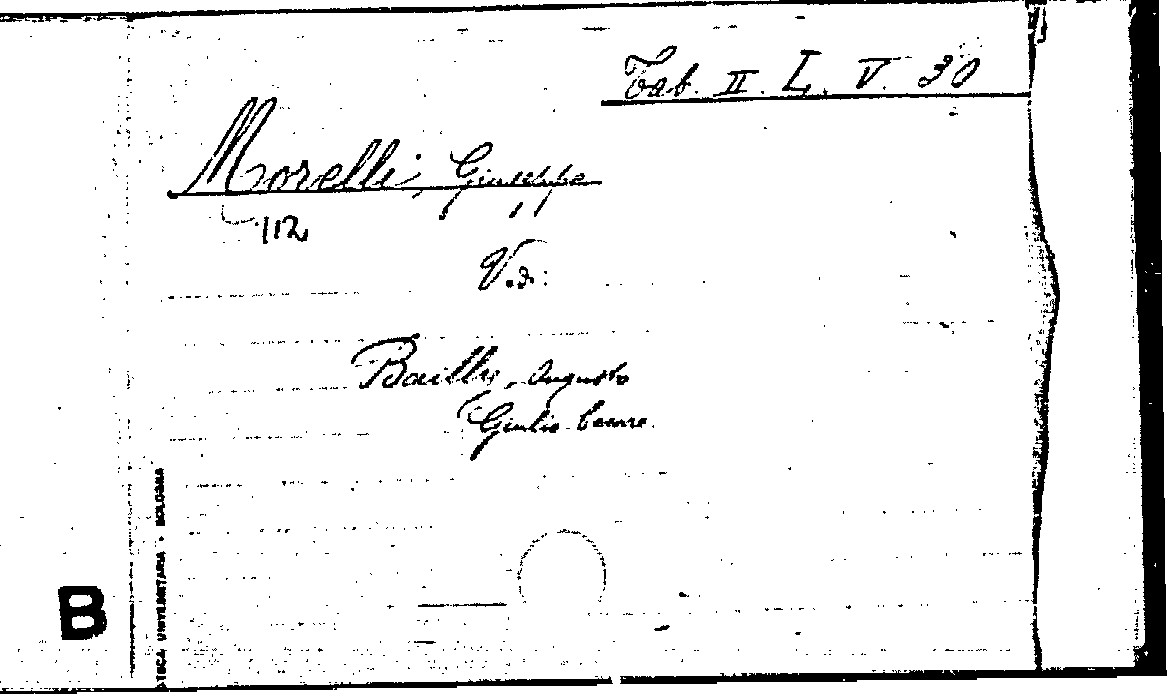 Tab. II. L. V. 30
Morelli, Giuseppe
112
V.di:
Bailly, Augusto
Giulio Cesare.
B
ATECA UNIVERSITARIA • BOLOGNA